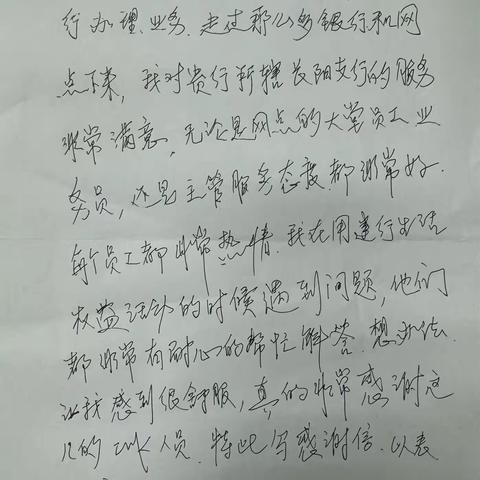 行办理业务.走过那么多银行和网
点下来,我对贵行所辖长阳支行的服务
非常满意,无论是网点的大堂员工业
务员,还是主管服务态度都非常好.
每个员工都非常热情.我在用建行生活
权益活动的时候遇到问题,他们
都非常有耐心的帮忙解答.想办法.
让我感到很舒服,真的非常感谢这
儿的工作人员.特此写感谢信.以表